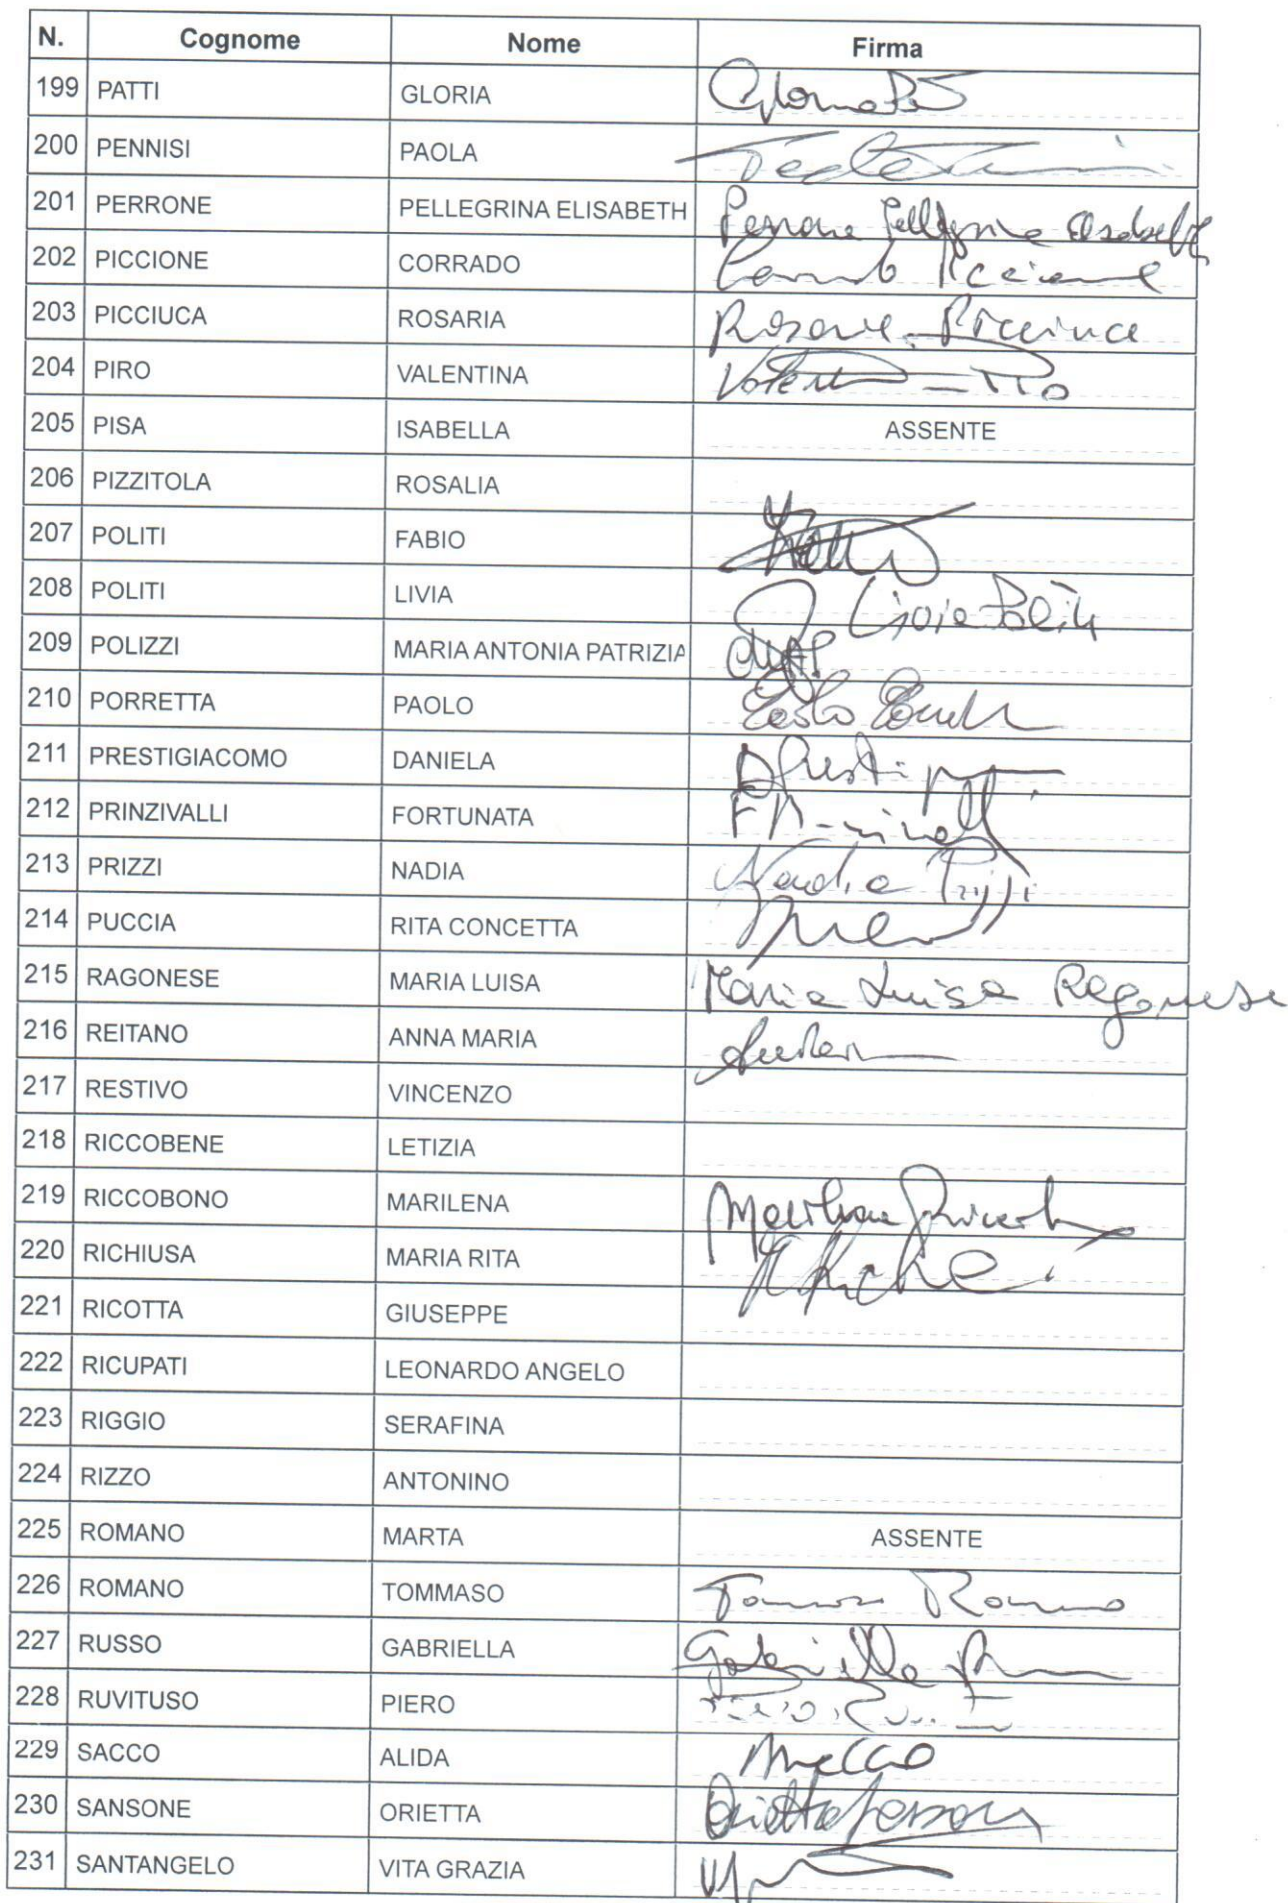 N. Cognome Nome Firma
199 PATTI GLORIA
200 PENNISI PAOLA
201 PERRONE PELLEGRINA ELISABETH Perrone Pellegrina
202 PICCIONE CORRADO Piccione
203 PICCIUCA ROSARIA Rosaria Picciuca
204 PIRO VALENTINA Valentina Piro
205 PISA ISABELLA ASSENTE
206 PIZZITOLA ROSALIA
207 POLITI FABIO
208 POLITI LIVIA Livia Politi
209 POLIZZI MARIA ANTONIA PATRIZIA
210 PORRETTA PAOLO
211 PRESTIGIACOMO DANIELA
212 PRINZIVALLI FORTUNATA
213 PRIZZI NADIA Nadia Prizzi
214 PUCCIA RITA CONCETTA
215 RAGONESE MARIA LUISA Maria Luisa Ragonese
216 REITANO ANNA MARIA
217 RESTIVO VINCENZO
218 RICCOBENE LETIZIA
219 RICCOBONO MARILENA
220 RICHIUSA MARIA RITA
221 RICOTTA GIUSEPPE
222 RICUPATI LEONARDO ANGELO
223 RIGGIO SERAFINA
224 RIZZO ANTONINO
225 ROMANO MARTA ASSENTE
226 ROMANO TOMMASO Tommaso Romano
227 RUSSO GABRIELLA Gabriella
228 RUVITUSO PIERO
229 SACCO ALIDA
230 SANSONE ORIETTA Orietta Sansone
231 SANTANGELO VITA GRAZIA